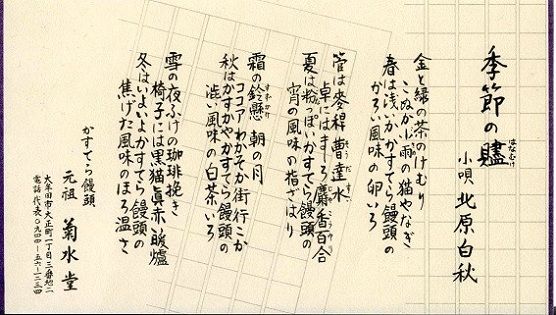 季節の贐
はなむけ
小唄 北原白秋
金と緑の茶のけむり
こぬか小雨の猫やなぎ
春は浅いかかすてら饅頭の
かろい風味の卵いろ
管は麦稈曹達水
卓にはましろ麝香百合
夏は粉っぽいかすてら饅頭の
宵の風味の指ざはり
霜の鈴懸朝の月
ココアわかそか街行こか
秋はかすかやかすてら饅頭の
澁い風味の白茶いろ
雪の夜ふけの珈琲挽き
椅子には黒猫眞赤な煖爐
冬はいよいよかすてら饅頭の
焦げた風味のほろ温さ
かすてら饅頭
元祖 菊水堂
大牟田市大正町一丁目三番地二
電話代表〇九四四-五六-一二三四